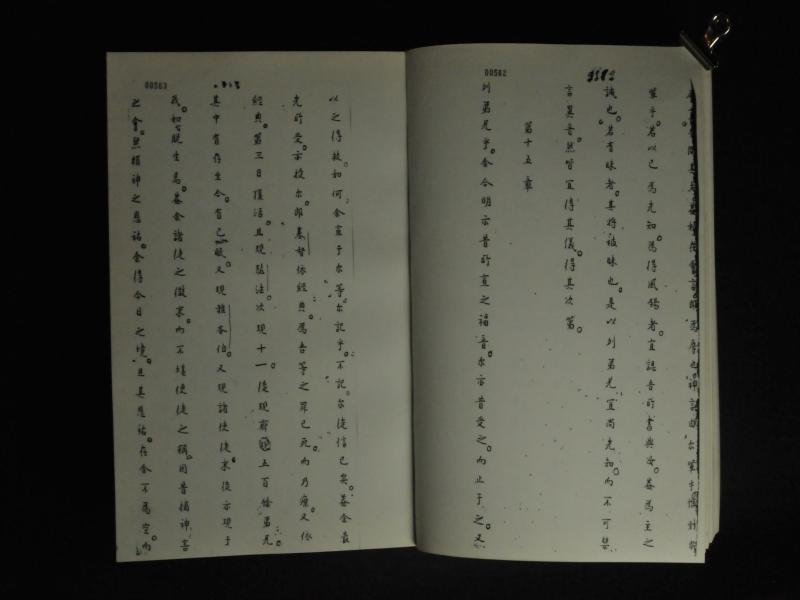 00562
業乎。若以已為先知。為得風錫者。宜認吾所書與汝。蓋為主之
誡也。若有昧者。其將被昧也。是以列弟兄宜尚先知。而不可禁
言異音。然皆宜得其儀。得其次第。
第十五章
列弟兄乎。余今明示昔所宣之福音。尔亦昔受之。而止于之。又
00563
以之得救。如何余宣于尔等。尔記乎。不記。尔徒信已矣。蓋余最
先所受。亦授尔。即基督依經典。為吾等之罪已死。而乃瘞。又依
經典。第三日復活。且現 法。次現十一。後現齊 五百餘弟兄。
其中有存至今。有已眠。又現 各伯。又現諸使徒。末後亦現于
我。如 生焉。蓋余諸徒之微末。而不堪使徒之稱。因昔捕神
之會。然賴神之恩祐。余得今日之境。且其恩祐。在余不為空。而